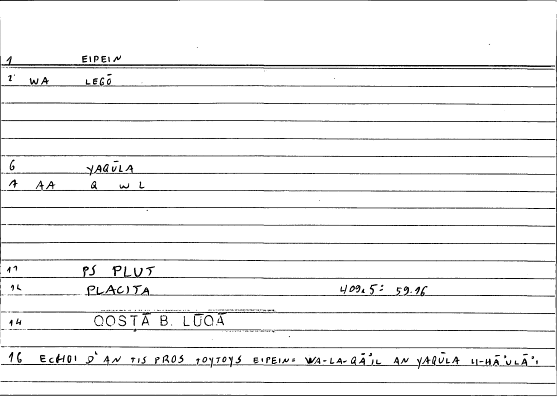 1 EIPEIN
2 WA LEGŌ
6 YAQŪLA
7 AA Q W L
11 PS PLUT
12 PLACITA 409a5: 59.16
14 QOSṬĀ B. LŪQĀ
16 ECHOI D'AN TIS PROS TOYTOYS EIPEIN: WA-LA-QĀ'IL AN YAQŪLA LI-HĀ'ULĀ'I